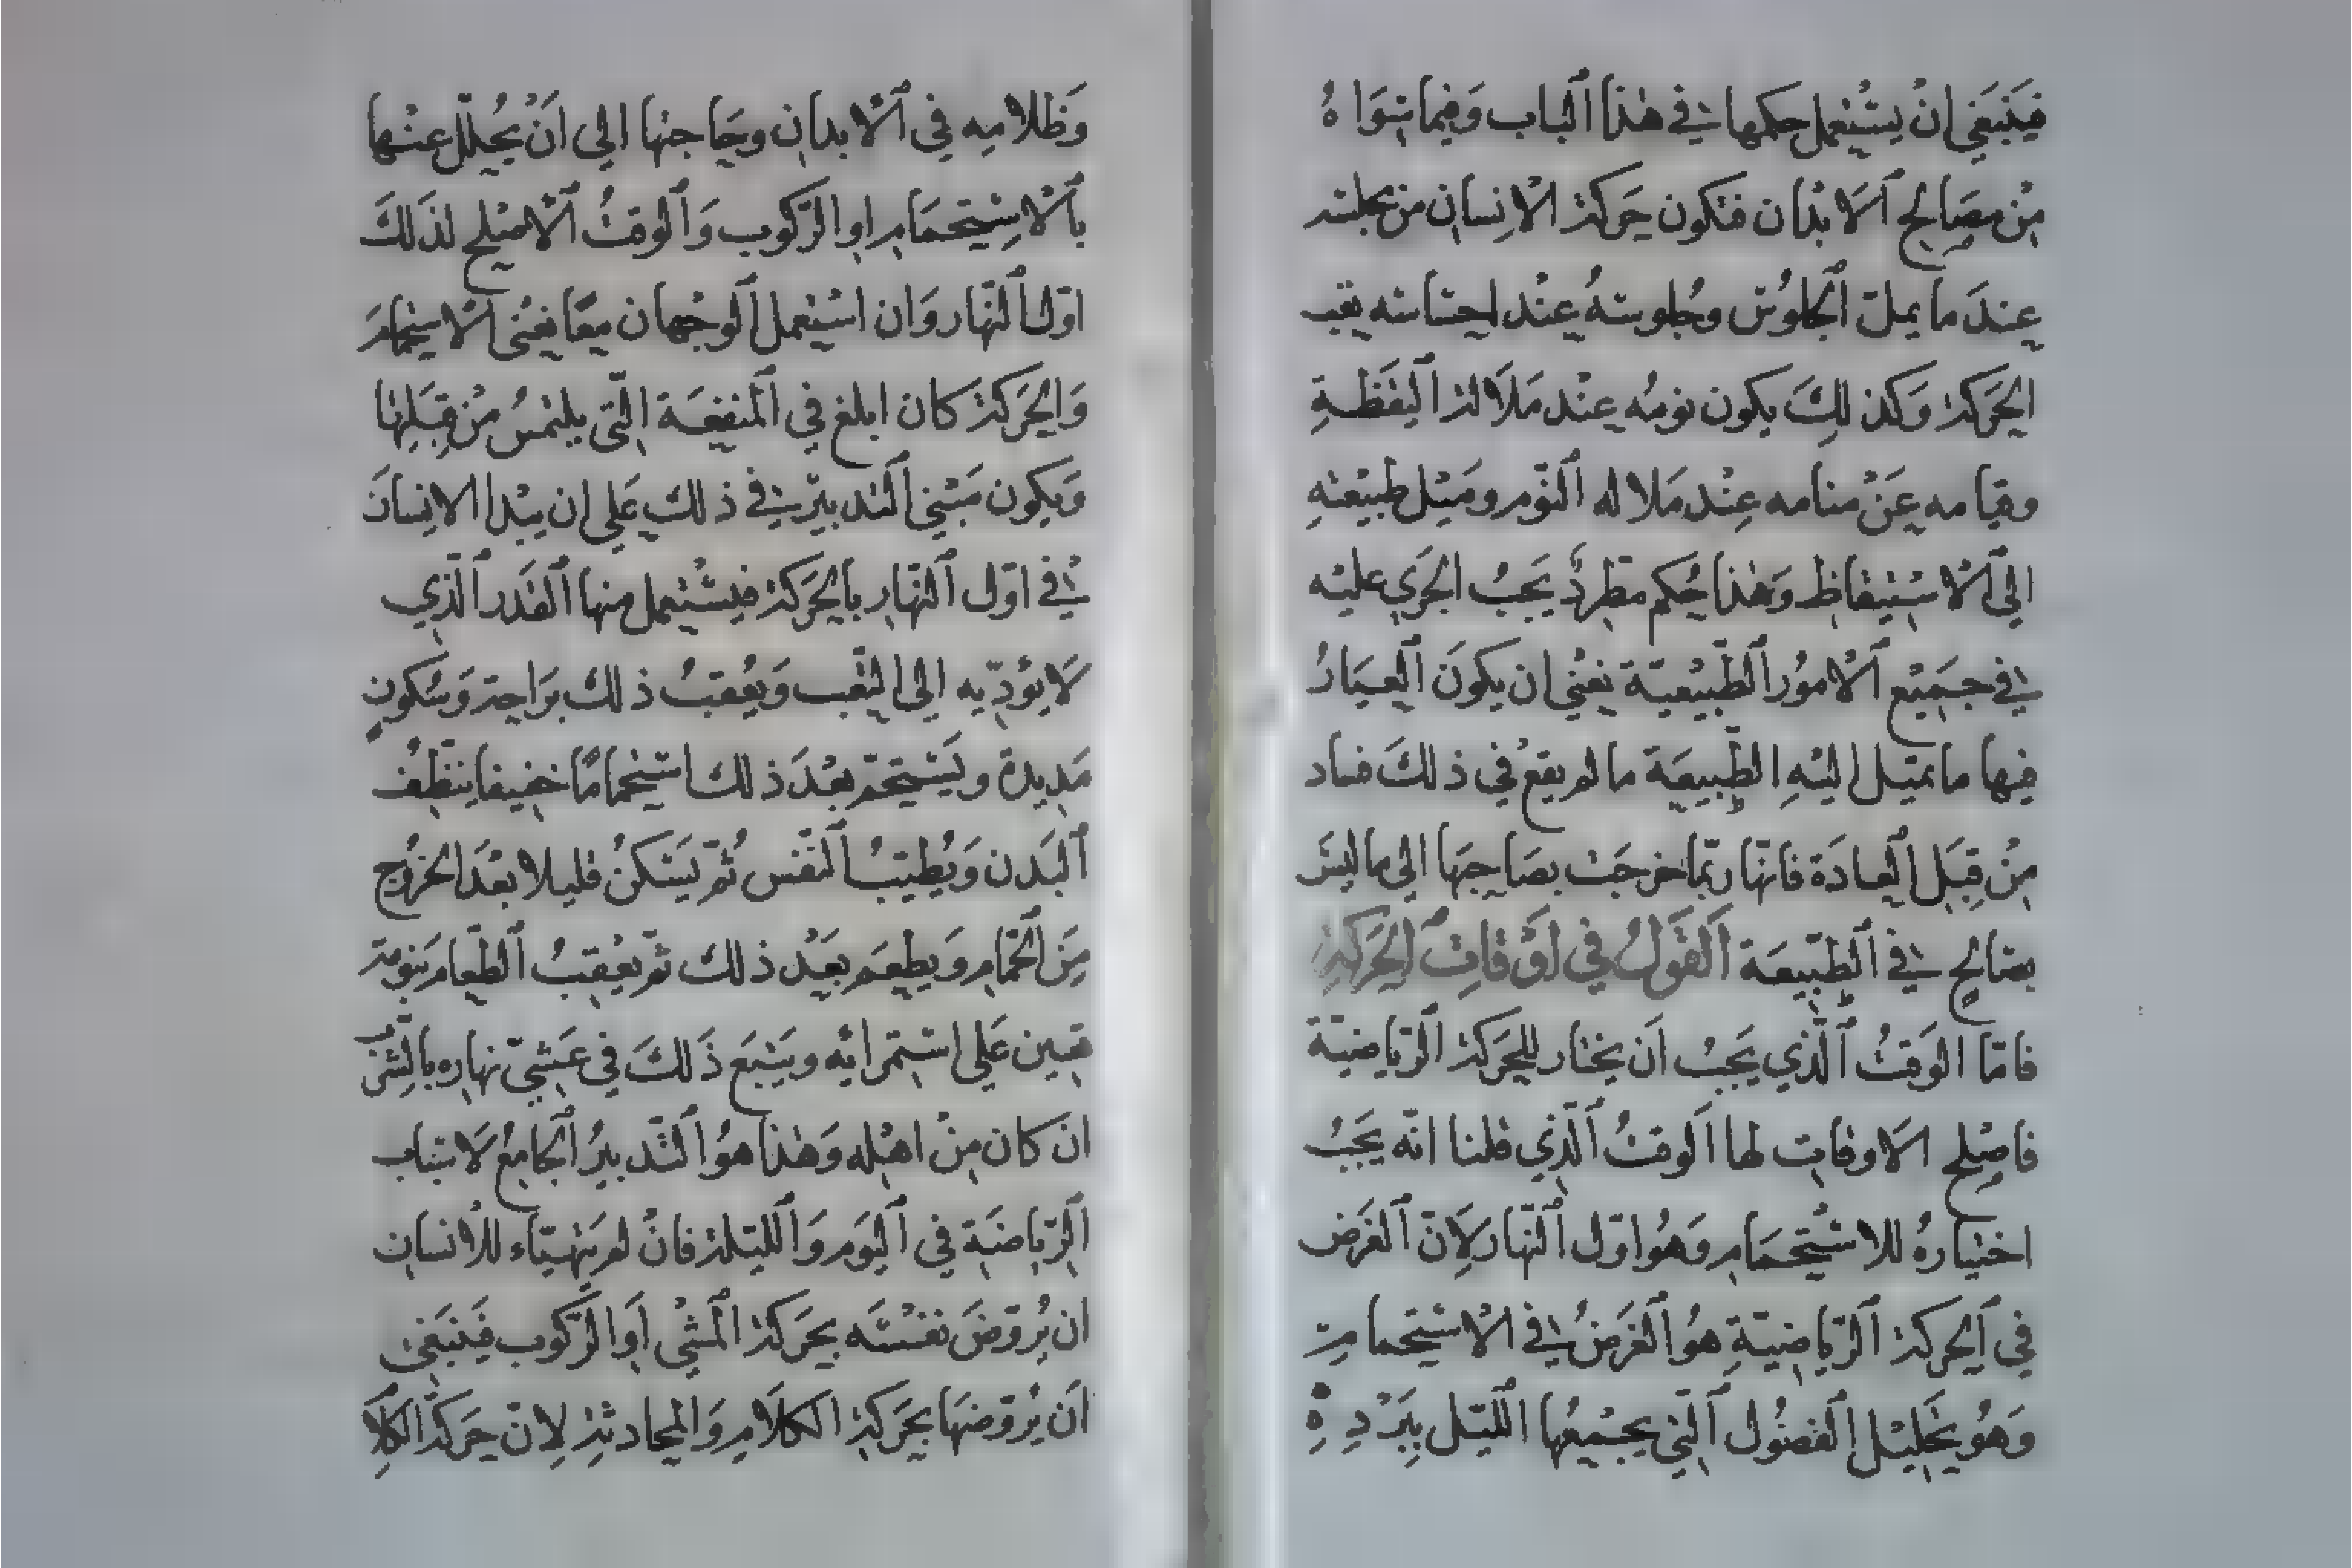 فَيَنبَغي انْ يسْتعمل حكمها في هٰذا اَلباب وَفيما سِوَاهُ
مِنْ مصَالح اَلابدَان فتكون حَركة الانِسان من مجلسه
عِندَ ما يملّ اَلجلوُسَ وجُلوسهُ عِنْد احسَاسه بتعب
الحَركة وَكذلِكَ يكون نومُه عِنْد مَلَالة اَليقَظةِ
وقيامه عَنْ منامه عِنْد مَلاله اَلنّوم ومَيْل طبيعَتهِ
الي اَلاسْتيقاظ وَهٰذا حُكم مطّردٌ يَجبُ الجَري عليْه
في جميْع اَلامُور اَلطّبيْعيّة نعْني ان يكونَ اَلعيَارُ
فيها ما تميْل اليْهِ الطّبيعَة ما لم يقع في ذلكَ فساد
مِنْ قِبَل اَلعادَة فانّها ربّما خرجَت بصَاحبهَا الي ما ليسَ
بصَالحٍ في اَلطّبيعَة اَلقَولُ في اَوْقاتِ اَلحَرَكةِ
فامّا الوَقتُ اَلّذي يَجبُ اَن يختار للحَركة اَلرّياضيّة
فاصْلح الاَوقات لها اَلوقتُ اَلّذي قلنا انّه يَجبُ
اختيارهُ للاسْتحمَام وَهُو اوّل اَلنّهار لِانّ اَلغَرَض
في اَلحركة اَلرّياضيّةِ هُو اَلغَرَضُ في الاسْتحمام
وَهُو تحَليْل اَلفضُول اَلّتي يجمعُها اللّيْل بِبَرْدِهِ
وَظلامِه في اَلابدان وحَاجتها الي اَنْ يُحلّل عنْها
بالاسْتحمَام او الرّكوب وَاَلوقتُ اَلاصْلح لذَلكَ
اوّل اَلنّهار وَان اسْتعمل اَلوجْهان معًا نعْني اَلاستحمامَ
وَالحَركة كان ابلغ في اَلمنفعَة الّتي يلتمسُ مِنْ قِبَلِها
وَيكون مَبْني اَلتدبيْر في ذلك عَلي ان يبْدا الانِسانَ
في اوّل اَلنّهار بالحَركة فيسْتعمل منها اَلقَدر اَلّذي
لَا يؤدّيه الي التّعب وَيعُقبُ ذلك برَاحة وَسُكونٍ
مَديدة ويَسْتحمّ بعْدَ ذلك استحمامًا خفيفا ينظّف
اَلبَدن وَيُطيّبُ اَلنّفس ثُمّ يَسْكنُ قليلا بعْدَ الخرُوج
مِنَ اَلحَمّام وَيطعَم بعَيْد ذلك ثمّ يعْقبُ اَلطّعام بَنومة
تعين عَلي اسْتمرائه ويَتبَع ذَلكَ في عَشيّ نهاره بالشرب
ان كان مِنْ اهْله وَهٰذا هُو اَلتّدبيرُ اَلجامعُ لَاسْباب
اَلرّياضَة في اَليَوم وَاَلليْلة فانْ لم يَتهيّاء للاْنسان
ان يُروّضَ نفسَه بحَركة المْشي اَو الرّكوب فَينبَغي
اَن يُروّضهَا بحَركة الكلَام وَالمحادثة لِانّ حَركة الكلَام